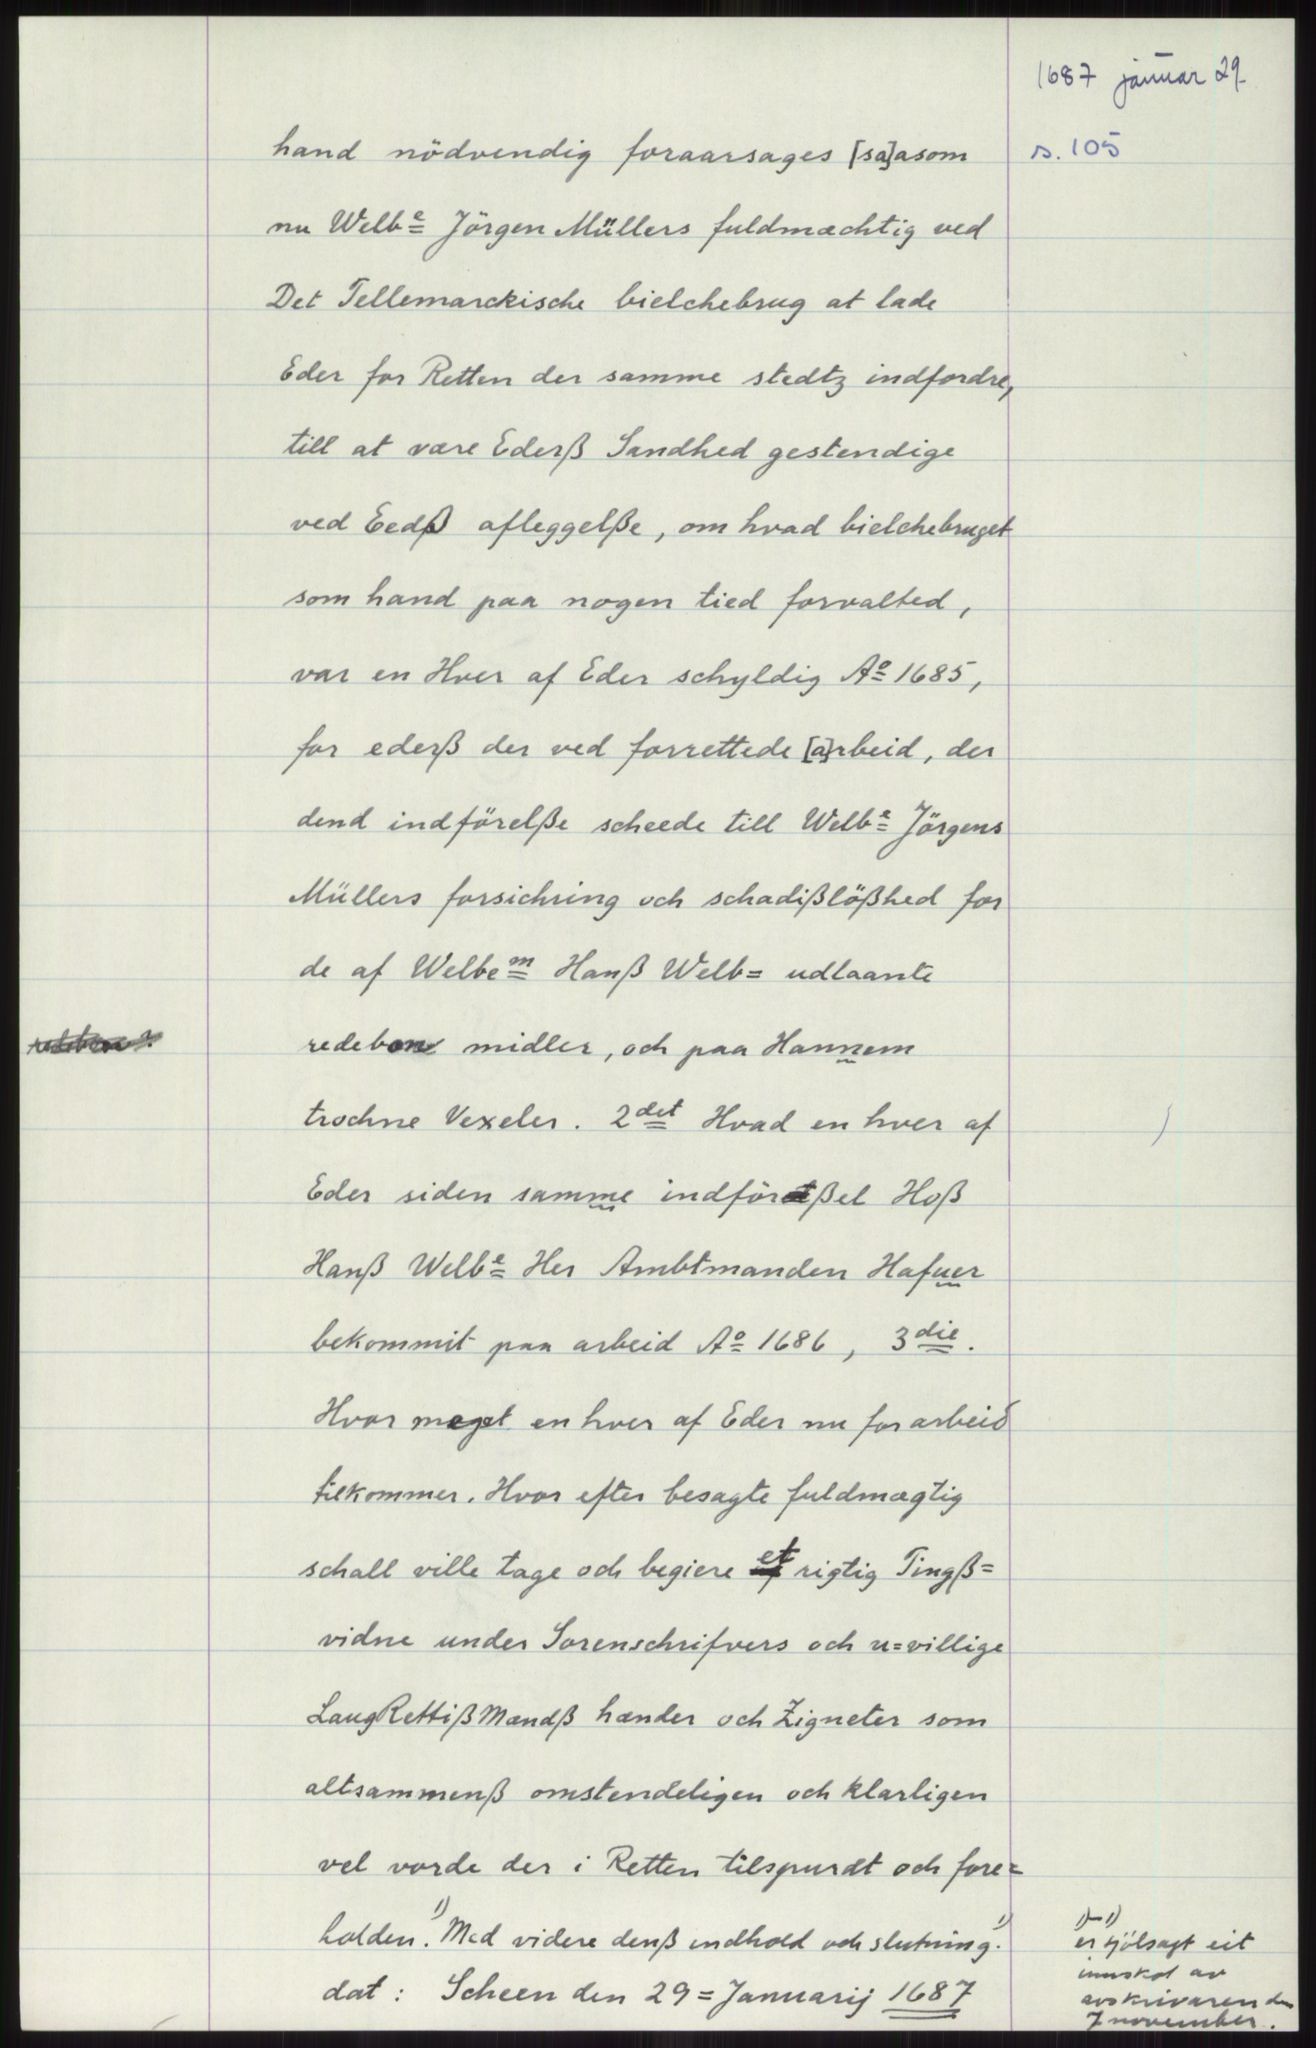 1687 januar 29
s. 105
hand nödvendig foraarsages [sa]asom
nu Welbᵉ= Jörgen Müllers fuldmæchtig ved
Det Tellemarckische bielchebrug at lade
Eder for Retten der samme stedtz indfordre,
till at være Ederß Sandhed gestendige
ved Eedß afleggelße, om hvad bielchebruget
som hand paa nogen tied forvalted,
var en Hver af Eder schyldig Aº= 1685,
for ederß der ved forrettede [a]rbeid, der
dend indförelße scheede till Welbᵉ= Jörgens
Müllers forsichring och schadißlößhed for
de af Welbeᵐ= Hanß Welb= udlaante
redebon midler, och paa Hannem
trochne Vexeler. 2det Hvad en hver af
Eder siden samme indförßel Hoß
Hanß Welbᵉ= Her Ambtmanden Hafuer
bekommit paa arbeid Aº= 1686, 3die.
Hvor meget en hver af Eder nu for arbeid
tilkommer. Hvor efter besagte fuldmægtig
schall ville tage och begiere et rigtig Tingß=
vidne under Sorenschrifvers och u=villige
LaugRettißMændß hænder och Zigneter som
altsammenß omstendeligen och klarligen
vel vorde der i Retten tilspurdt och fore=
holden. 1) Med videre denß indhold och slutning. 1)
dat: Scheen den 29= Januarij 1687
1)–1)
er sjölsagt eit
innskot av
avskrivaren den
7 november.